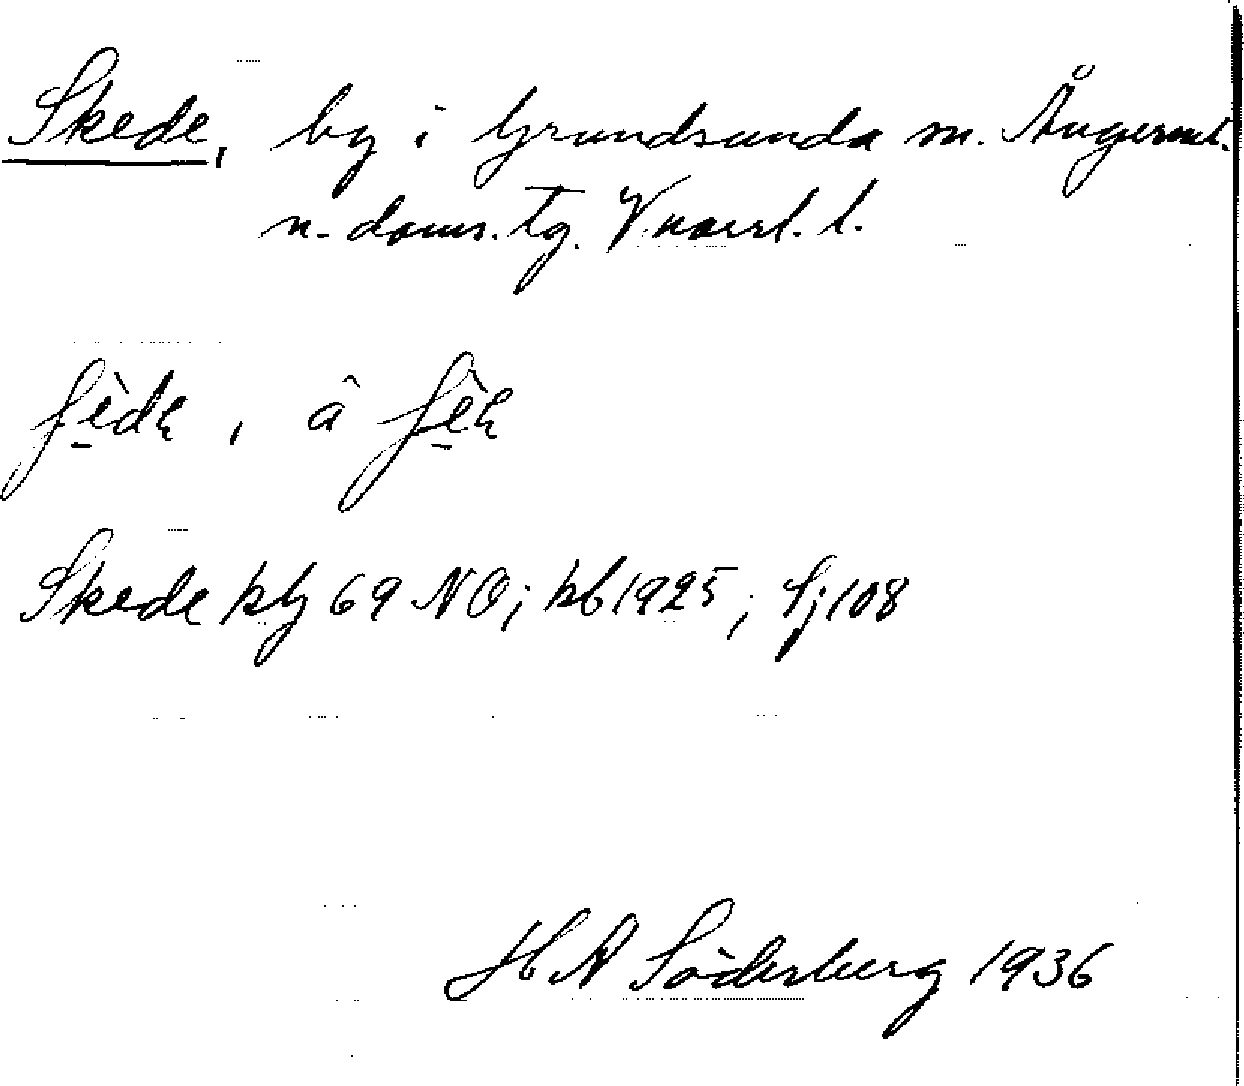 Skede, by i Grundsunda sn. Ångerml.
n. doms. tg. Vnorrl. l.
ʃède, â ʃèe
Skede ktg 69 NO; kb 1925; Sj 108
H A Söderberg 1936